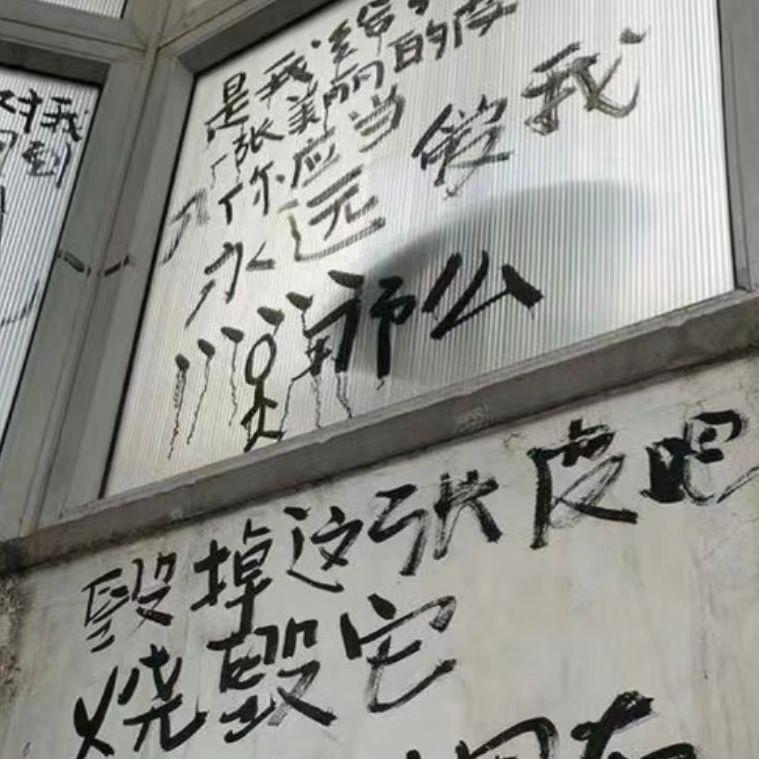 对我
到
是我给
一张美丽的皮
你应当
永远爱我
那么
毁掉这张皮吧
烧毁它